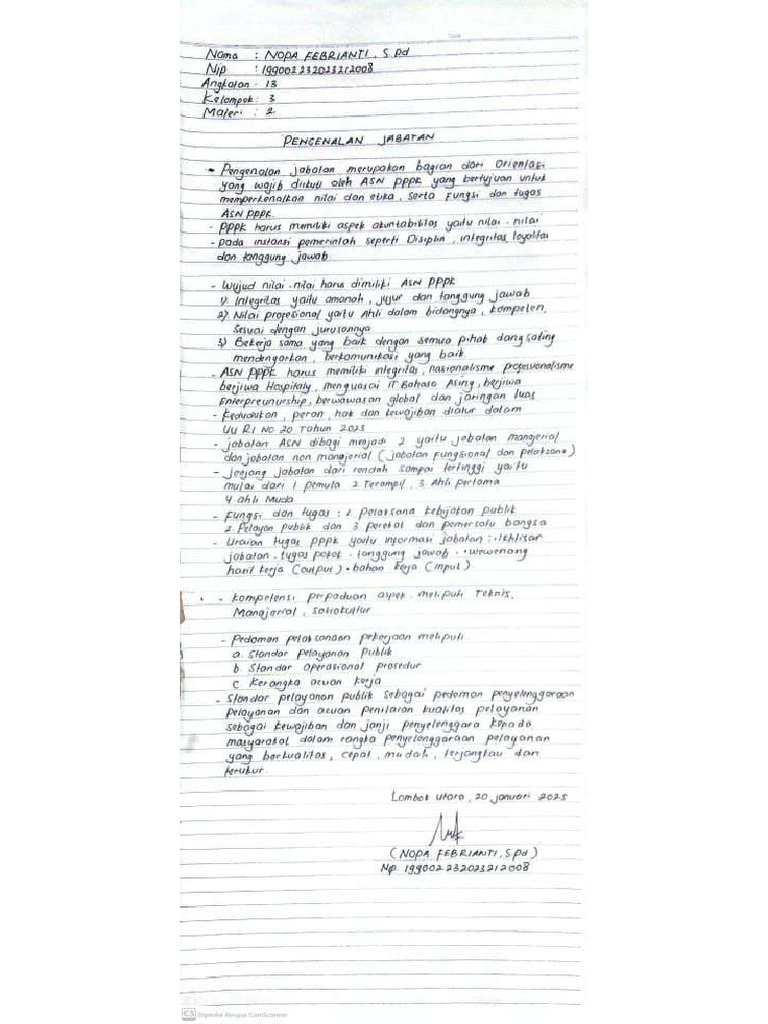 Nama : NOPA FEBRIANTI, S.Pd
Nip : 199002232023212008
Angkatan : 13
Kelompok : 3
Materi : 2
PENGENALAN JABATAN
- Pengenalan jabatan merupakan bagian dari Orientasi
yang wajib diikuti oleh ASN PPPK yang bertujuan untuk
memperkenalkan nilai dan etika, serta fungsi dan tugas
ASN PPPK.
- PPPK harus memiliki aspek akuntabilitas yaitu nilai-nilai
- pada instansi pemerintah seperti Disiplin, integritas loyalitas
dan tanggung jawab
- Wujud nilai-nilai harus dimiliki ASN PPPK
1) Integritas yaitu amanah, jujur dan tanggung jawab
2) Nilai profesional yaitu Ahli dalam bidangnya, kompeten,
Sesuai dengan jurusannya
3) Bekerja sama yang baik dengan semua pihak dang saling
mendengarkan, berkomunikasi yang baik
- ASN PPPK harus memiliki integritas, nasionalisme professionalisme
berjiwa Hospitaly, menguasai IT Bahasa Asing, berjiwa
Enterpreunurship, berwawasan global dan jaringan luas
- Kedudukan, peran, hak dan kewajiban diatur dalam
UU RI No 20 Tahun 2023
- jabatan ASN dibagi menjadi 2 yaitu jabatan manajerial
dan jabatan non manajerial (jabatan fungsional dan pelaksana)
- Jenjang jabatan dari rendah sampai tertinggi yaitu
mulai dari 1 pemula 2 Terampil, 3 Ahli pertama
4 ahli Muda
- Fungsi dan tugas : 1. pelaksana kebijakan publik
2. Pelayan publik dan 3 perekat dan pemersatu bangsa
- Uraian tugas PPPK yaitu informasi jabatan : - Ikhtisar
jabatan - tugas pokok - tanggung jawab - wewenang
hasil kerja (output) - bahan kerja (input)
- kompetensi perpaduan aspek meliputi Teknis,
Manajerial, sosiokultur
- Pedoman pelaksanaan pekerjaan meliputi
a. Standar pelayanan publik
b Standar operasional prosedur
c Kerangka acuan kerja
- Standar pelayanan publik sebagai pedoman penyelenggaraan
pelayanan dan acuan penilaian kualitas pelayanan
sebagai kewajiban dan janji penyelenggara kepada
masyarakat dalam rangka penyelenggaraan pelayanan
yang berkualitas, cepat, mudah, terjangkau dan
terukur.
Lombok Utara, 20 januari 2025
(NOPA FEBRIANTI, S.Pd)
Nip 199002232023212008
CS Dipindai dengan CamScanner